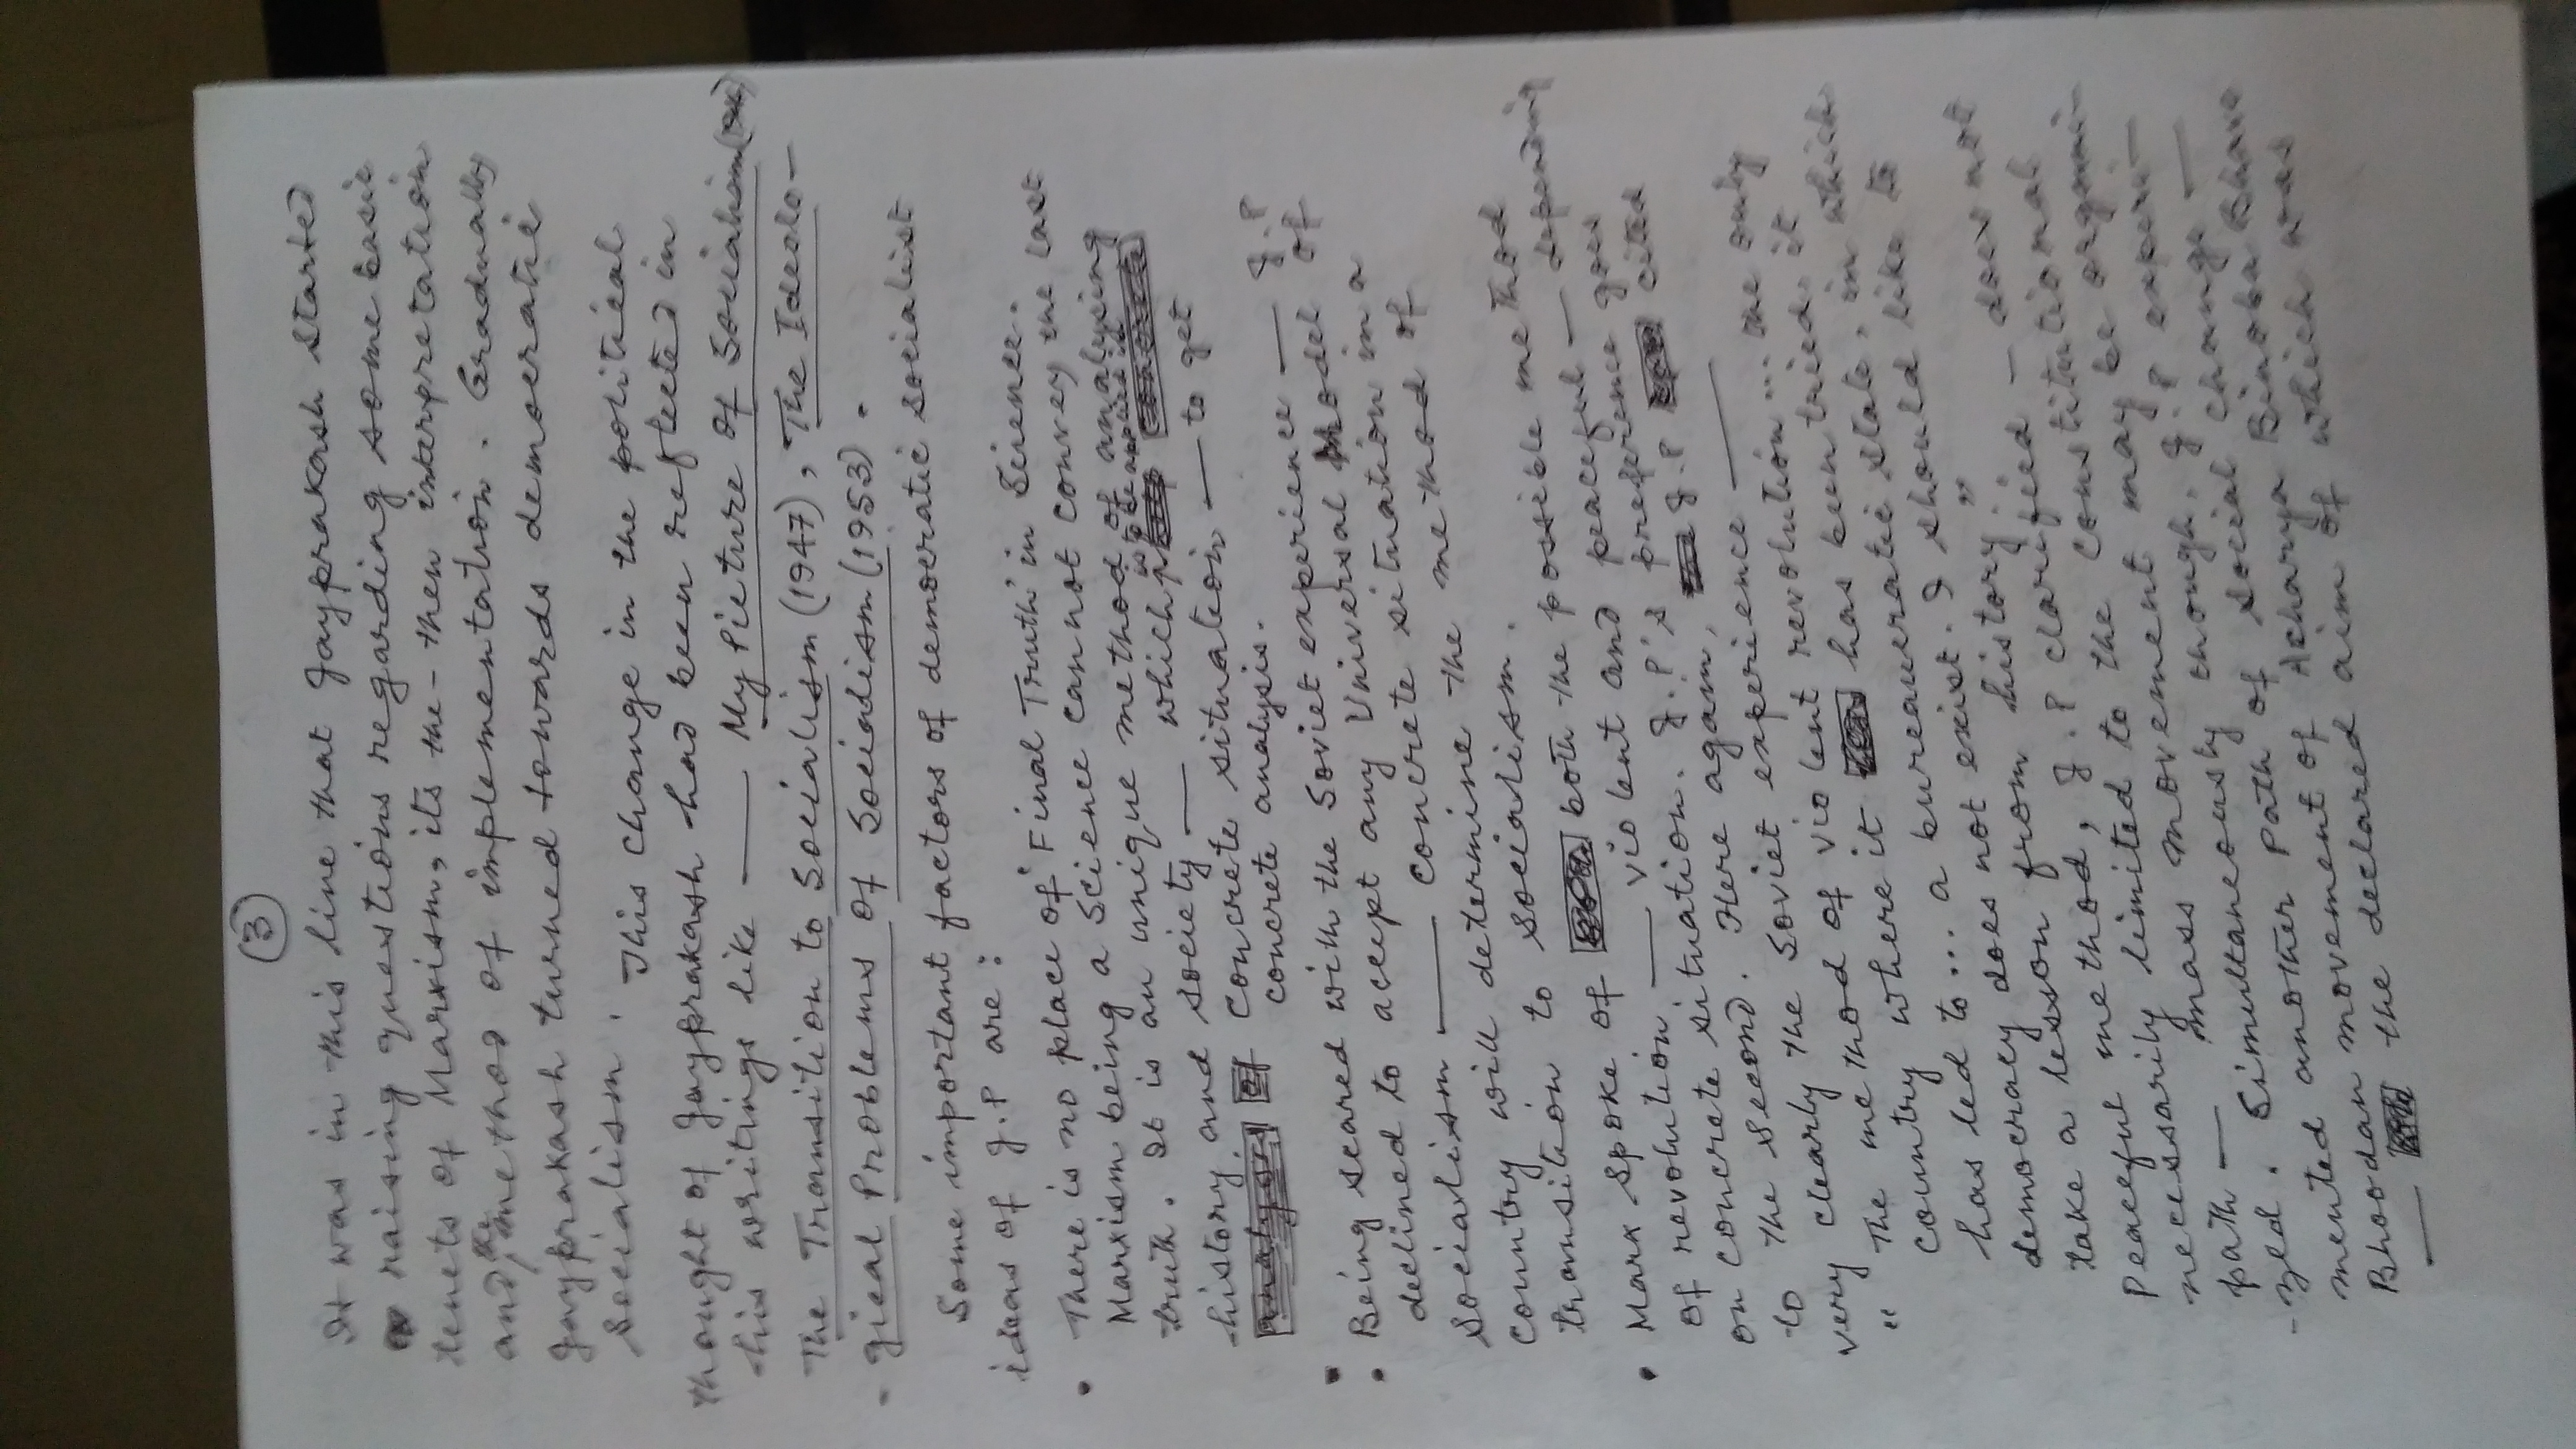 (3)
It was in this line that Jayprakash started
raising questions regarding some basic
tenets of Marxism, its the-then interpretation
and the method of implementation. Gradually
Jayprakash turned towards democratic
Socialism. This change in the political
thought of Jayprakash had been reflected in
his writings like — My Picture of Socialism
The Transition to Socialism (1947), The Ideolo-
-gical Problems of Socialism (1953).
Some important factors of democratic socialist
ideas of J.P are :
• There is no place of 'Final Truth' in Science.
Marxism being a Science can not convey the last
truth. It is an unique method of analysing
history and society — which is to get
concrete situation —
concrete analysis.
• Being scared with the Soviet experience — J.P
• declined to accept any Universal Model of
Socialism — concrete situation in a
country will determine the method of
transition to socialism.
• Marx spoke of both the possible method
of revolution — violent and peaceful — depending
on concrete situation. J.P's preference goes
to the second. Here again, J.P cited
very clearly the Soviet experience —
" The method of violent revolution ... the only
country where it has been tried it
has led to ... a bureaucratic state, in which
democracy does not exist. I should like to
take a lesson from history "
Peaceful method, J.P clarified — does not
necessarily limited to the constitutional
path — mass movement may be organi-
-zed. Simultaneously though, J.P experi-
mented another Path of social change —
Bhoodan movement of Acharya Binoba Bhave
— the declared aim of which was